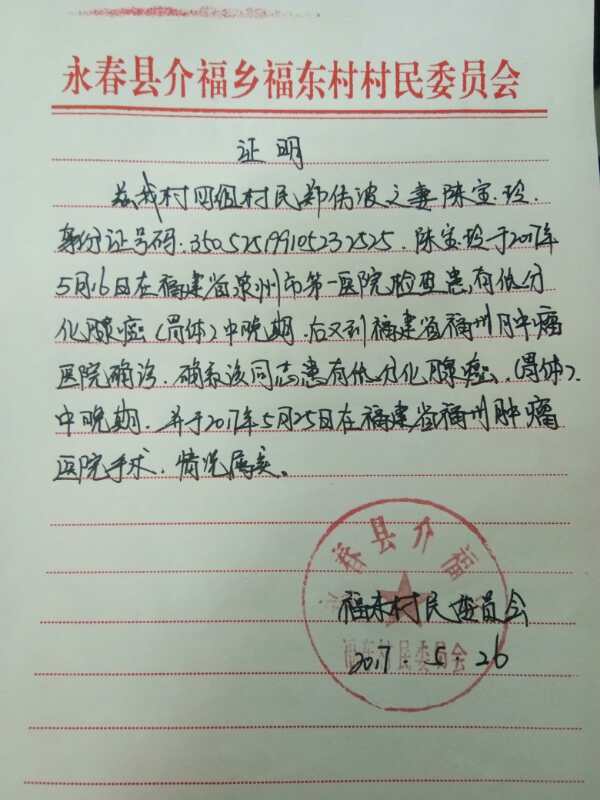 永春县介福乡福东村村民委员会
证明
兹我村四组村民郑伟波之妻陈宝玲.
身份证号码.350525199105232525.陈宝玲于2017年
5月16日在福建省泉州市第一医院检查患有低分
化腺癌(胃体)中晚期.后又到福建省福州肿瘤
医院确诊.确系该同志患有低分化腺癌.(胃体).
中晚期.并于2017年5月25日在福建省福州肿瘤
医院手术.情况属实。
春县介福
福东村民委员会
福东村民委员会
2017.5.26